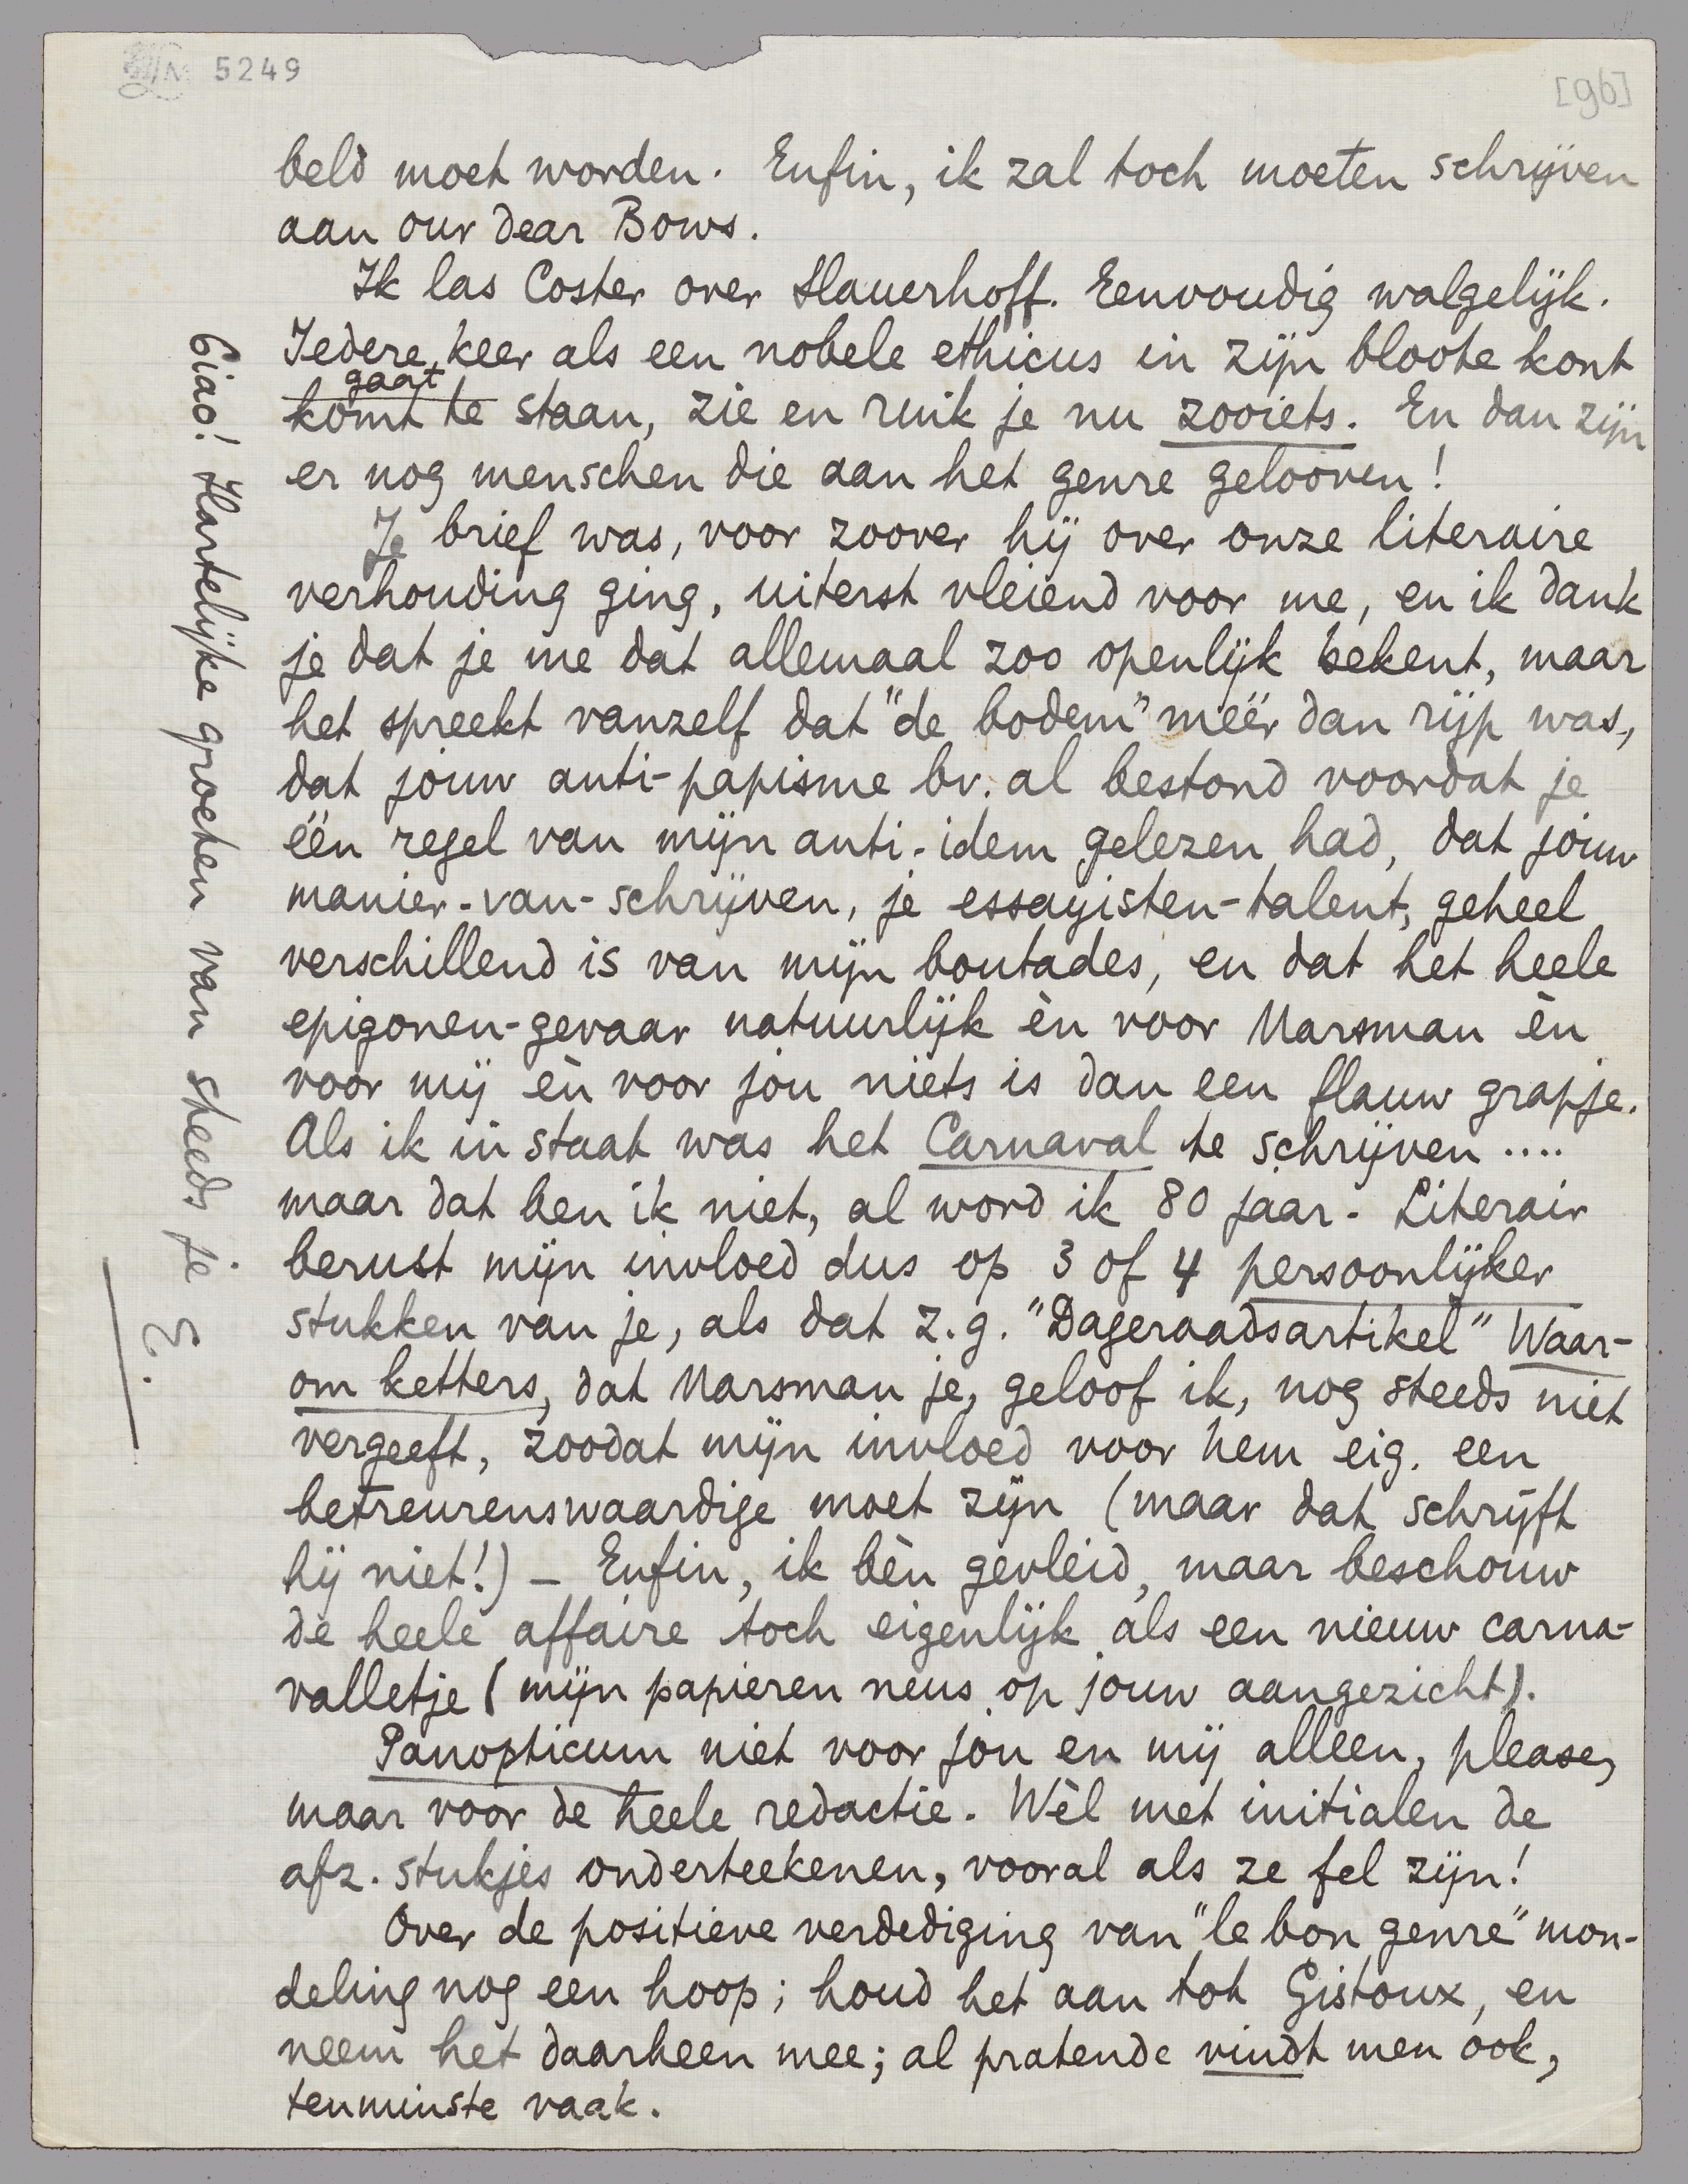 5249
[96]
beld moet worden. Enfin, ik zal toch moeten schrijven
aan our dear Bows.
Ik las Coster over Slauerhoff. Eenvoudig walgelijk.
Iedere keer als een nobele ethicus in zijn bloote kont
gaat
komt te staan, zie en ruik je nu zooiets. En dan zijn
er nog menschen die aan het genre gelooven!
Je brief was, voor zoover hij over onze literaire
verhouding ging, uiterst vleiend voor me, en ik dank
je dat je me dat allemaal zoo openlijk bekent, maar
het spreekt vanzelf dat "de bodem" méér dan rijp was,
dat jouw anti-papisme bv. al bestond voordat je
één regel van mijn anti-idem gelezen had, dat jouw
manier-van-schrijven, je essayisten-talent, geheel
verschillend is van mijn boutades, en dat het heele
epigonen-gevaar natuurlijk èn voor Marsman èn
voor mij èn voor jou niets is dan een flauw grapje.
Als ik in staat was het Carnaval te schrijven ....
maar dat ben ik niet, al word ik 80 jaar. Literair
berust mijn invloed dus op 3 of 4 persoonlijker
stukken van je, als dat z.g. "Dageraadsartikel" Waar-
om ketters, dat Marsman je, geloof ik, nog steeds niet
vergeeft, zoodat mijn invloed voor hem eig. een
betreurenswaardige moet zijn (maar dat schrijft
hij niet!) – Enfin, ik bèn gevleid, maar beschouw
de heele affaire toch eigenlijk als een nieuw carna-
valletje (mijn papieren neus op jouw aangezicht).
Panopticum niet voor jou en mij alleen, please,
maar voor de heele redactie. Wèl met initialen de
afz. stukjes onderteekenen, vooral als ze fel zijn!
Over de positieve verdediging van "le bon genre" mon-
deling nog een hoop; houd het aan tot Gistoux, en
neem het daarheen mee; al pratende vindt men ook,
tenminste vaak.
Ciao! Hartelijke groeten van steeds je
E.